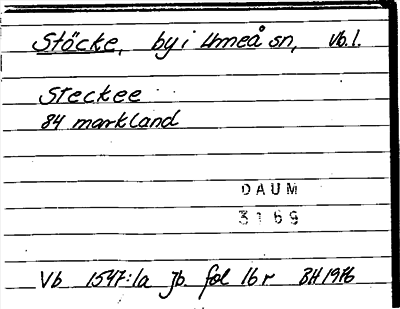 Stöcke, by i Umeå sn, Vb.l.
Steckee
84 markland
DAUM
3169
Vb 1547:1a Jb. fol 16 r BH 1976